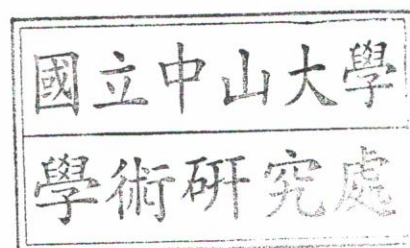 國立中山大學
學術研究處